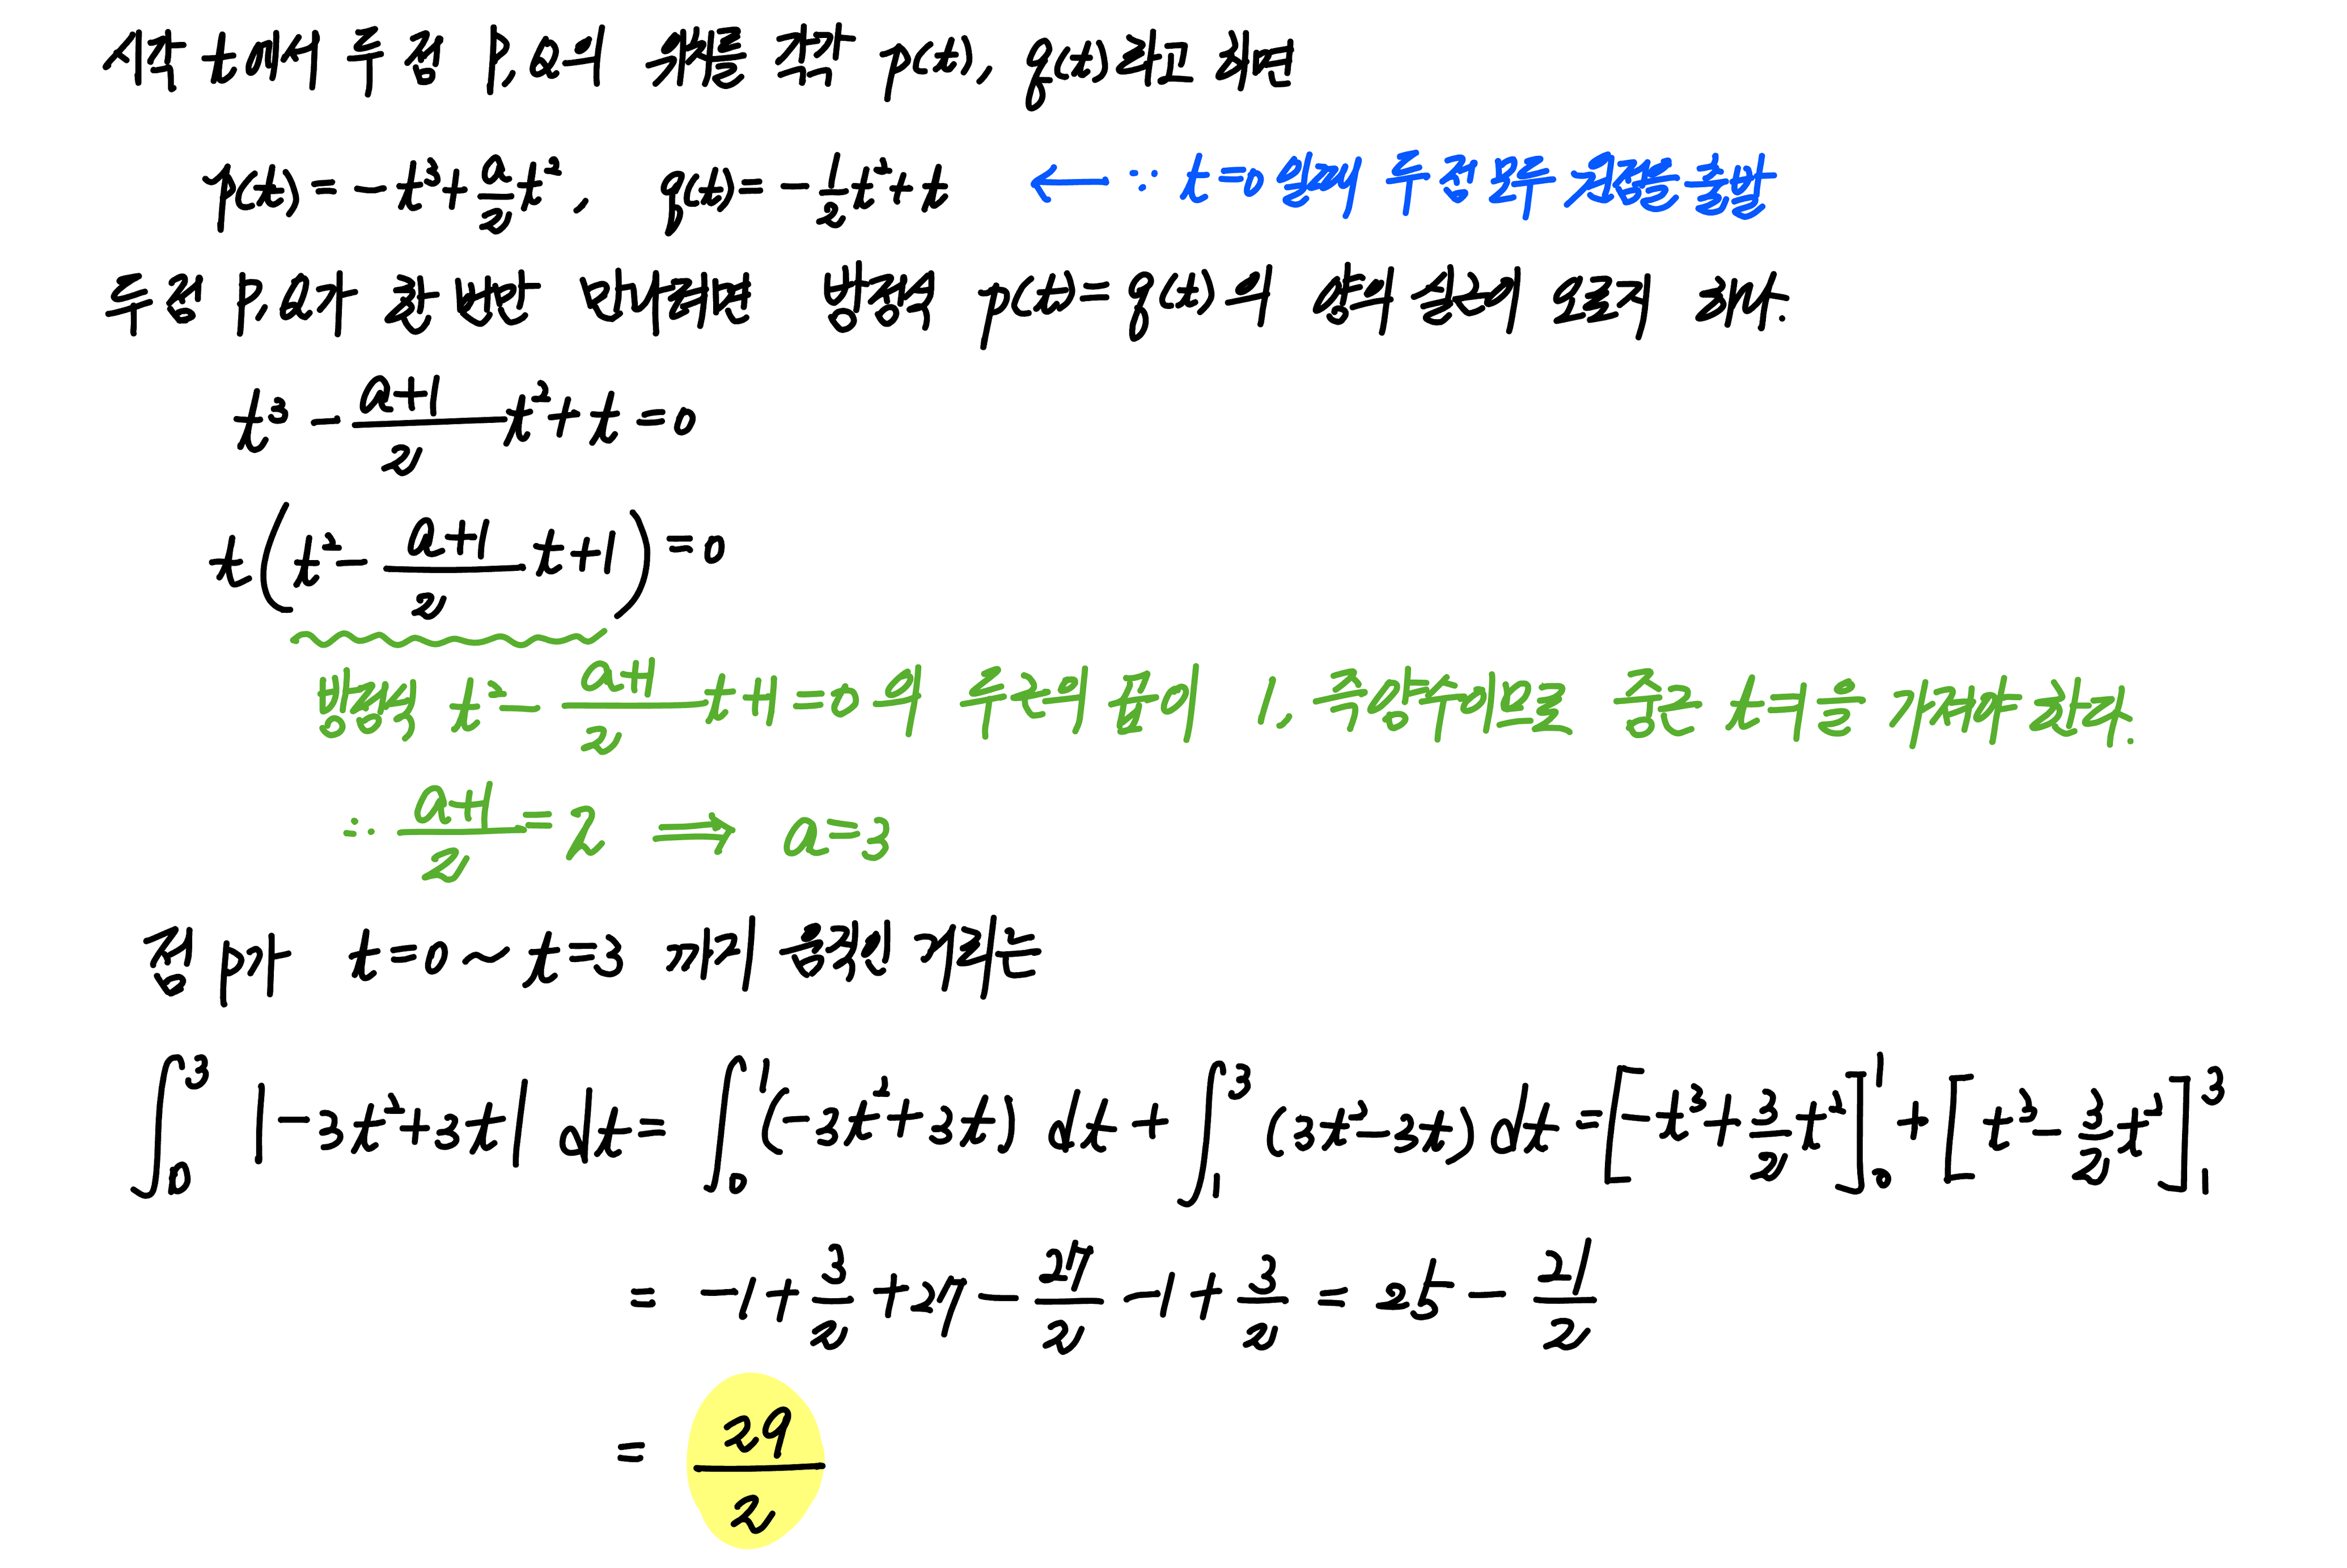 시각 t에서 두 점 P, Q의 위치를 각각 p(t), q(t)라고 하면
p(t) = -t³ + a/2 t², q(t) = -1/2 t² + t ← ∵ t=0 일 때 두 점 모두 원점을 출발
두 점 P, Q가 한 번만 만나려면 방정식 p(t) = q(t)의 양의 실근이 오로지 하나.
t³ - (a+1)/2 t² + t = 0
t(t² - (a+1)/2 t + 1) = 0
방정식 t² - (a+1)/2 t + 1 = 0 의 두 근의 곱이 1, 즉 양수이므로 중근 t=1을 가져야 한다.
∴ (a+1)/2 = 2 ⇒ a=3
점 P가 t=0 ~ t=3 까지 움직인 거리는
∫₀³ |-3t²+3t| dt = ∫₀¹ (-3t²+3t) dt + ∫₁³ (3t²-3t) dt = [-t³ + 3/2 t²]₀¹ + [t³ - 3/2 t²]₁³
= -1 + 3/2 + 27 - 27/2 - 1 + 3/2 = 25 - 21/2
= 29/2